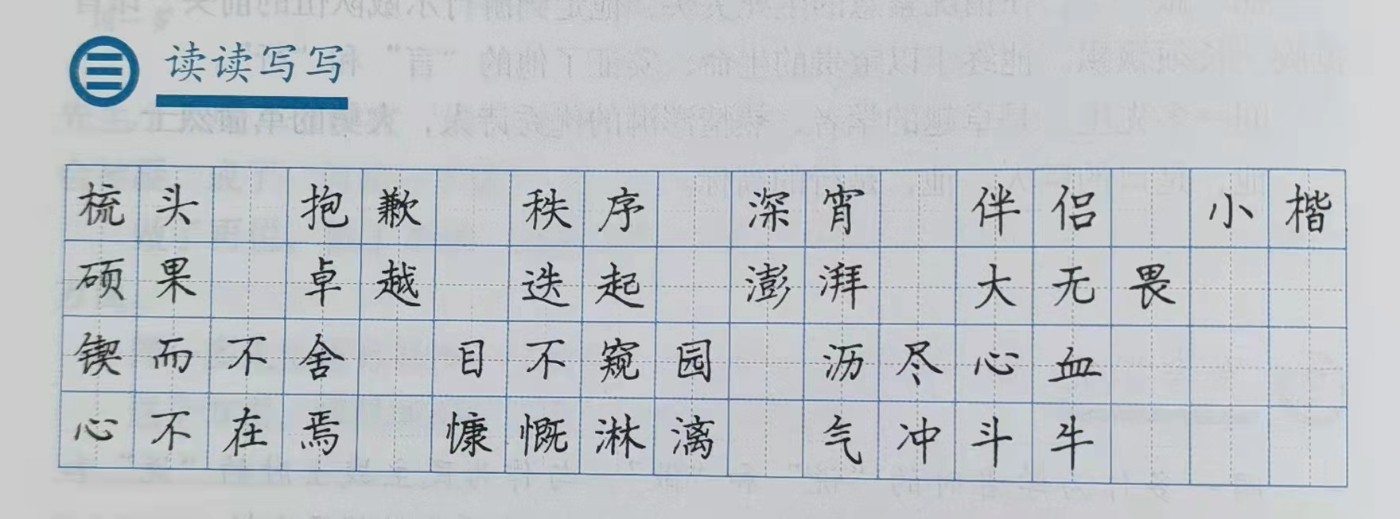 读读写写
梳头 抱歉 秩序 深宵 伴侣 小楷
硕果 卓越 迭起 澎湃 大无畏
锲而不舍 目不窥园 沥尽心血
心不在焉 慷慨淋漓 气冲斗牛